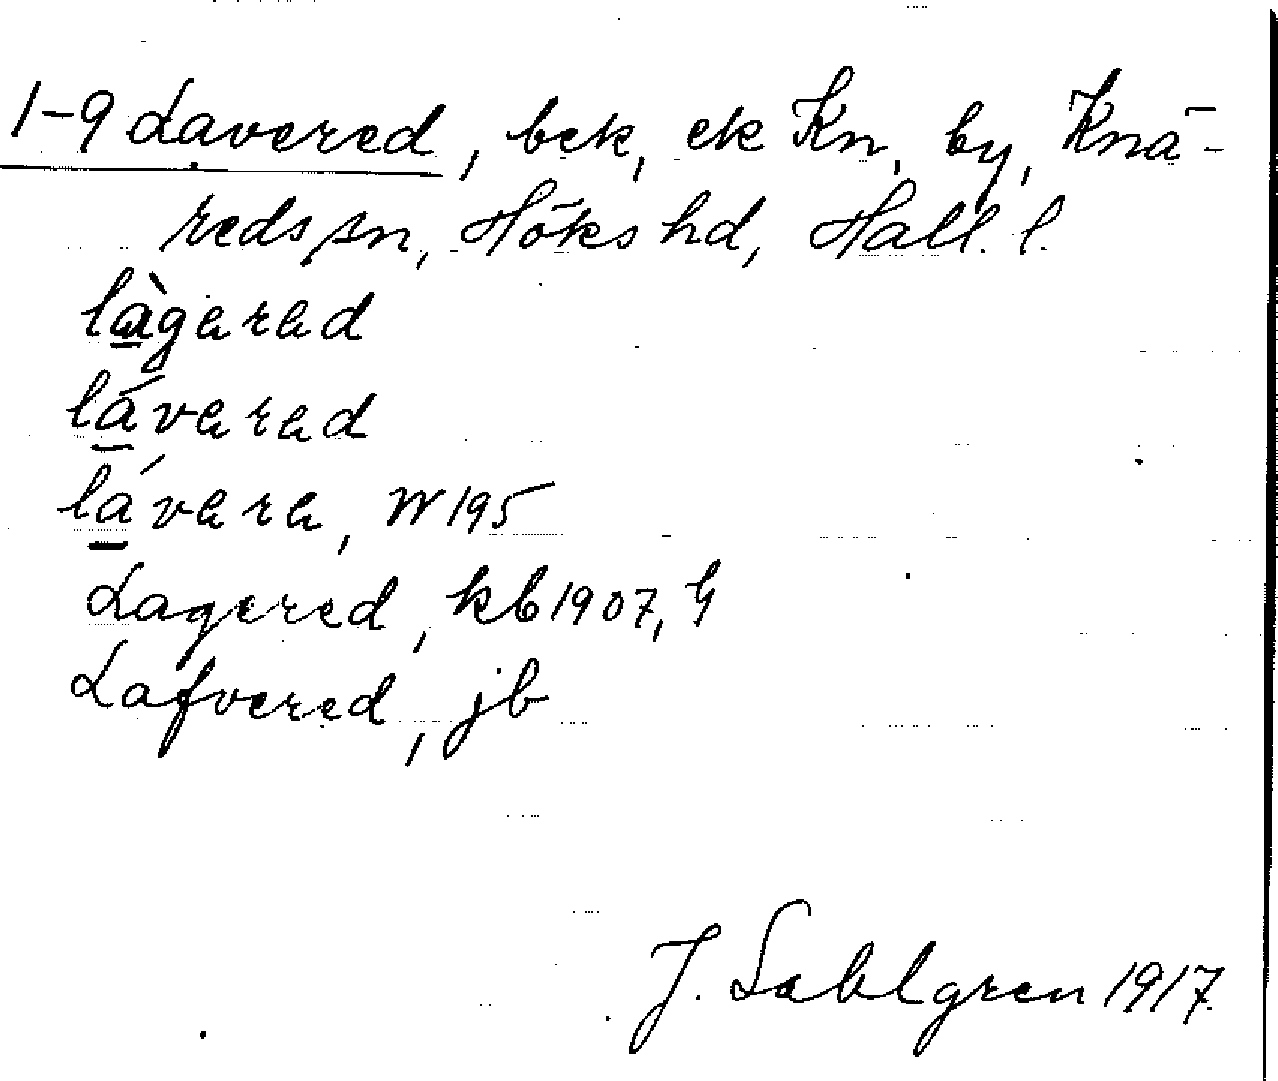 1-9 Lavered, bek, ek Kn, by, Knä-
reds sn, Höks hd, Hall. l.
là̱gered
lá̱vered
lá̱vere, W 195
Lagered, kb 1907, G
Lafvered, jb
J. Sahlgren 1917.